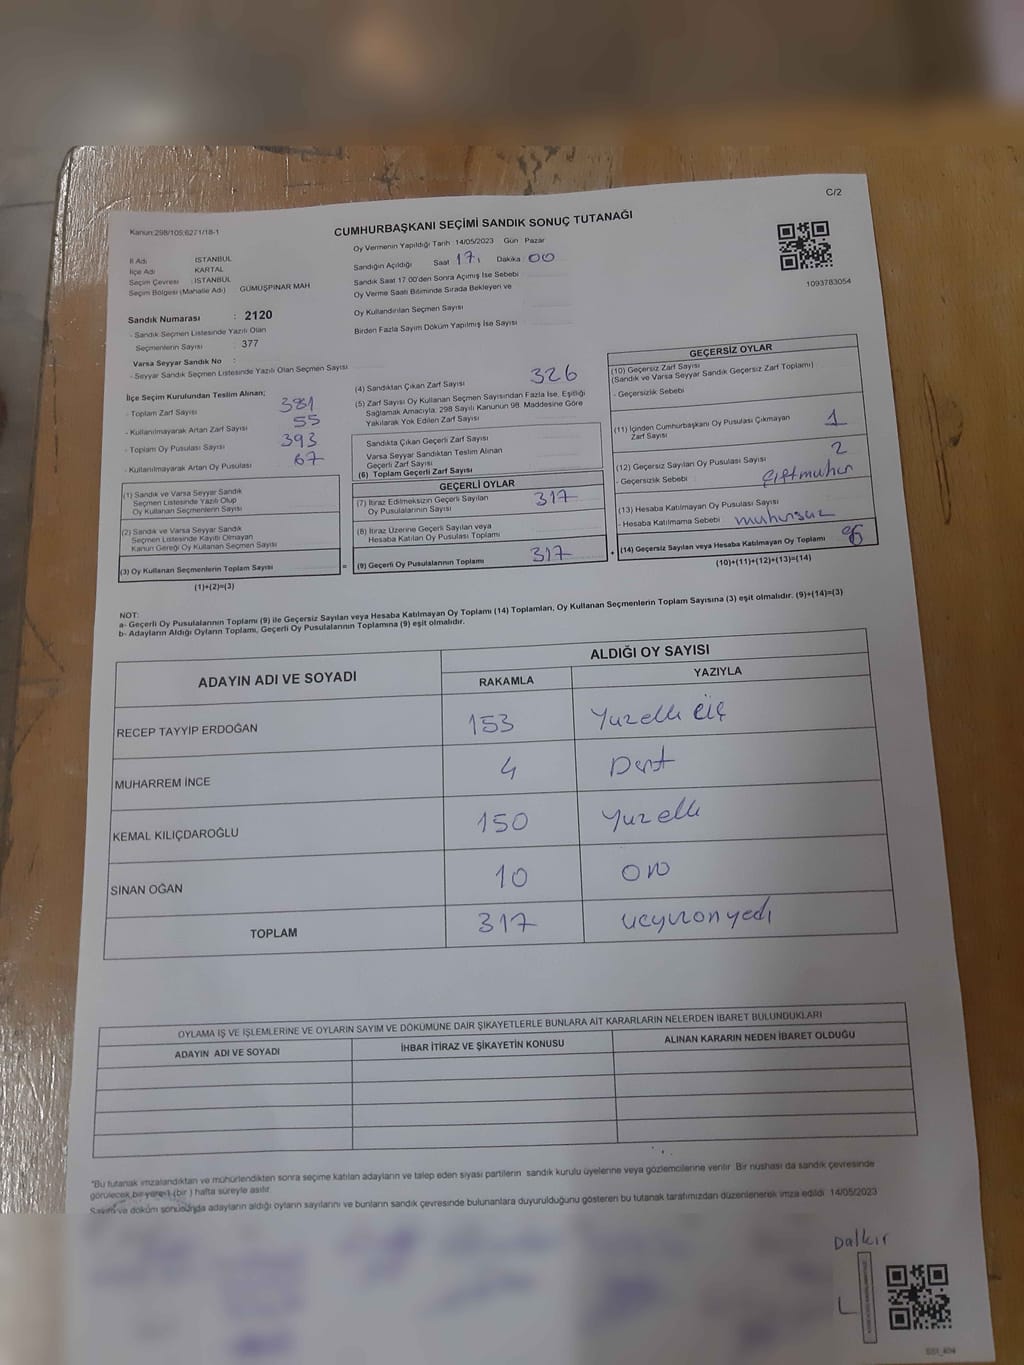 C/2
Kanun:298/105;6271/18-1
CUMHURBAŞKANI SEÇİMİ SANDIK SONUÇ TUTANAĞI
İl Adı : İSTANBUL
İlçe Adı : KARTAL
Seçim Çevresi : İSTANBUL
Seçim Bölgesi (Mahalle Adı) : GÜMÜŞPINAR MAH
Sandık Numarası : 2120
- Sandık Seçmen Listesinde Yazılı Olan
Seçmenlerin Sayısı : 377
Varsa Seyyar Sandık No :
- Seyyar Sandık Seçmen Listesinde Yazılı Olan Seçmen Sayısı
Oy Vermenin Yapıldığı Tarih 14/05/2023 Gün Pazar
Sandığın Açıldığı Saat 17. Dakika 00
Sandık Saat 17:00'den Sonra Açımış İse Sebebi
Oy Verme Saati Bitiminde Sırada Bekleyen ve
Oy Kullandırılan Seçmen Sayısı
Birden Fazla Sayım Döküm Yapılmış İse Sayısı
1093783054
İlçe Seçim Kurulundan Teslim Alınan;
- Toplam Zarf Sayısı 381
- Kullanılmayarak Artan Zarf Sayısı 55
- Toplam Oy Pusulası Sayısı 393
- Kullanılmayarak Artan Oy Pusulası 67
(1) Sandık ve Varsa Seyyar Sandık
Seçmen Listesinde Yazılı Olup
Oy Kullanan Seçmenlerin Sayısı
(2) Sandık ve Varsa Seyyar Sandık
Seçmen Listesinde Kayıtlı Olmayan
Kanun Gereği Oy Kullanan Seçmen Sayısı
(3) Oy Kullanan Seçmenlerin Toplam Sayısı
(1)+(2)=(3)
(4) Sandıktan Çıkan Zarf Sayısı 326
(5) Zarf Sayısı Oy Kullanan Seçmen Sayısından Fazla İse, Eşitliği
Sağlamak Amacıyla; 298 Sayılı Kanunun 98. Maddesine Göre
Yakılarak Yok Edilen Zarf Sayısı
Sandıkta Çıkan Geçerli Zarf Sayısı
Varsa Seyyar Sandıktan Teslim Alınan
Geçerli Zarf Sayısı
(6) Toplam Geçerli Zarf Sayısı
GEÇERLİ OYLAR
(7) İtiraz Edilmeksizin Geçerli Sayılan
Oy Pusulalarının Sayısı 317
(8) İtiraz Üzerine Geçerli Sayılan veya
Hesaba Katılan Oy Pusulası Toplamı
= (9) Geçerli Oy Pusulalarının Toplamı 317 +
GEÇERSİZ OYLAR
(10) Geçersiz Zarf Sayısı
(Sandık ve Varsa Seyyar Sandık Geçersiz Zarf Toplamı)
- Geçersizlik Sebebi
(11) İçinden Cumhurbaşkanı Oy Pusulası Çıkmayan
Zarf Sayısı 1
(12) Geçersiz Sayılan Oy Pusulası Sayısı 2
- Geçersizlik Sebebi çiftmuhur
(13) Hesaba Katılmayan Oy Pusulası Sayısı
- Hesaba Katılmama Sebebi muhursuz
(14) Geçersiz Sayılan veya Hesaba Katılmayan Oy Toplamı
(10)+(11)+(12)+(13)=(14)
NOT:
a- Geçerli Oy Pusulalarının Toplamı (9) ile Geçersiz Sayılan veya Hesaba Katılmayan Oy Toplamı (14) Toplamları, Oy Kullanan Seçmenlerin Toplam Sayısına (3) eşit olmalıdır. (9)+(14)=(3)
b- Adayların Aldığı Oyların Toplamı, Geçerli Oy Pusulalarının Toplamına (9) eşit olmalıdır.
ADAYIN ADI VE SOYADI ALDIĞI OY SAYISI
RAKAMLA YAZIYLA
RECEP TAYYİP ERDOĞAN 153 Yuzelli üç
MUHARREM İNCE 4 Dört
KEMAL KILIÇDAROĞLU 150 Yuzelli
SİNAN OĞAN 10 on
TOPLAM 317 ucyuzonyedi
OYLAMA İŞ VE İŞLEMLERİNE VE OYLARIN SAYIM VE DÖKÜMÜNE DAİR ŞİKAYETLERLE BUNLARA AİT KARARLARIN NELERDEN İBARET BULUNDUKLARI
ADAYIN ADI VE SOYADI İHBAR İTİRAZ VE ŞİKAYETİN KONUSU ALINAN KARARIN NEDEN İBARET OLDUĞU
"Bu tutanak imzalandıktan ve mühürlendikten sonra seçime katılan adayların ve talep eden siyasi partilerin sandık kurulu üyelerine veya gözlemcilerine verilir. Bir nüshası da sandık çevresinde
görülecek bir yere 1 (bir ) hafta süreyle asılır.
Sayım ve döküm sonucunda adayların aldığı oyların sayılarını ve bunların sandık çevresinde bulunanlara duyurulduğunu gösteren bu tutanak tarafımızdan düzenlenerek imza edildi. 14/05/2023
Dalkır